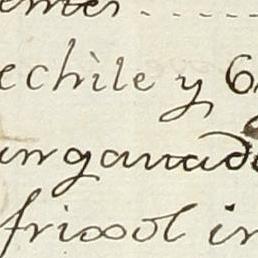 echile y 6
unganado
frixol in